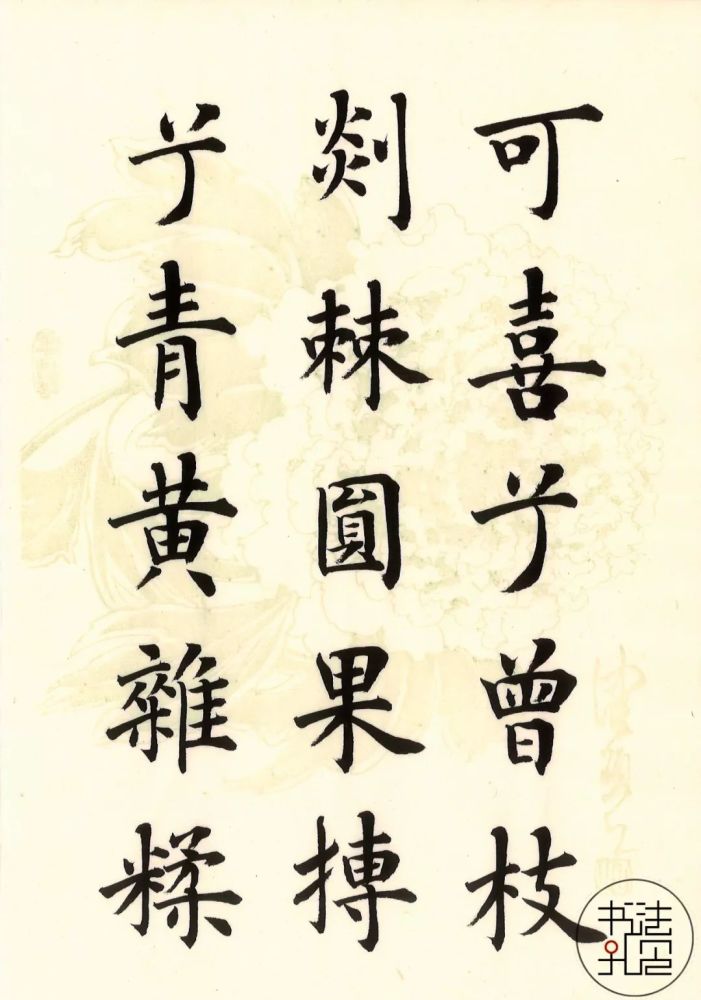 可喜兮曾枝
剡棘圓果摶
兮青黃雜糅
书法孔空